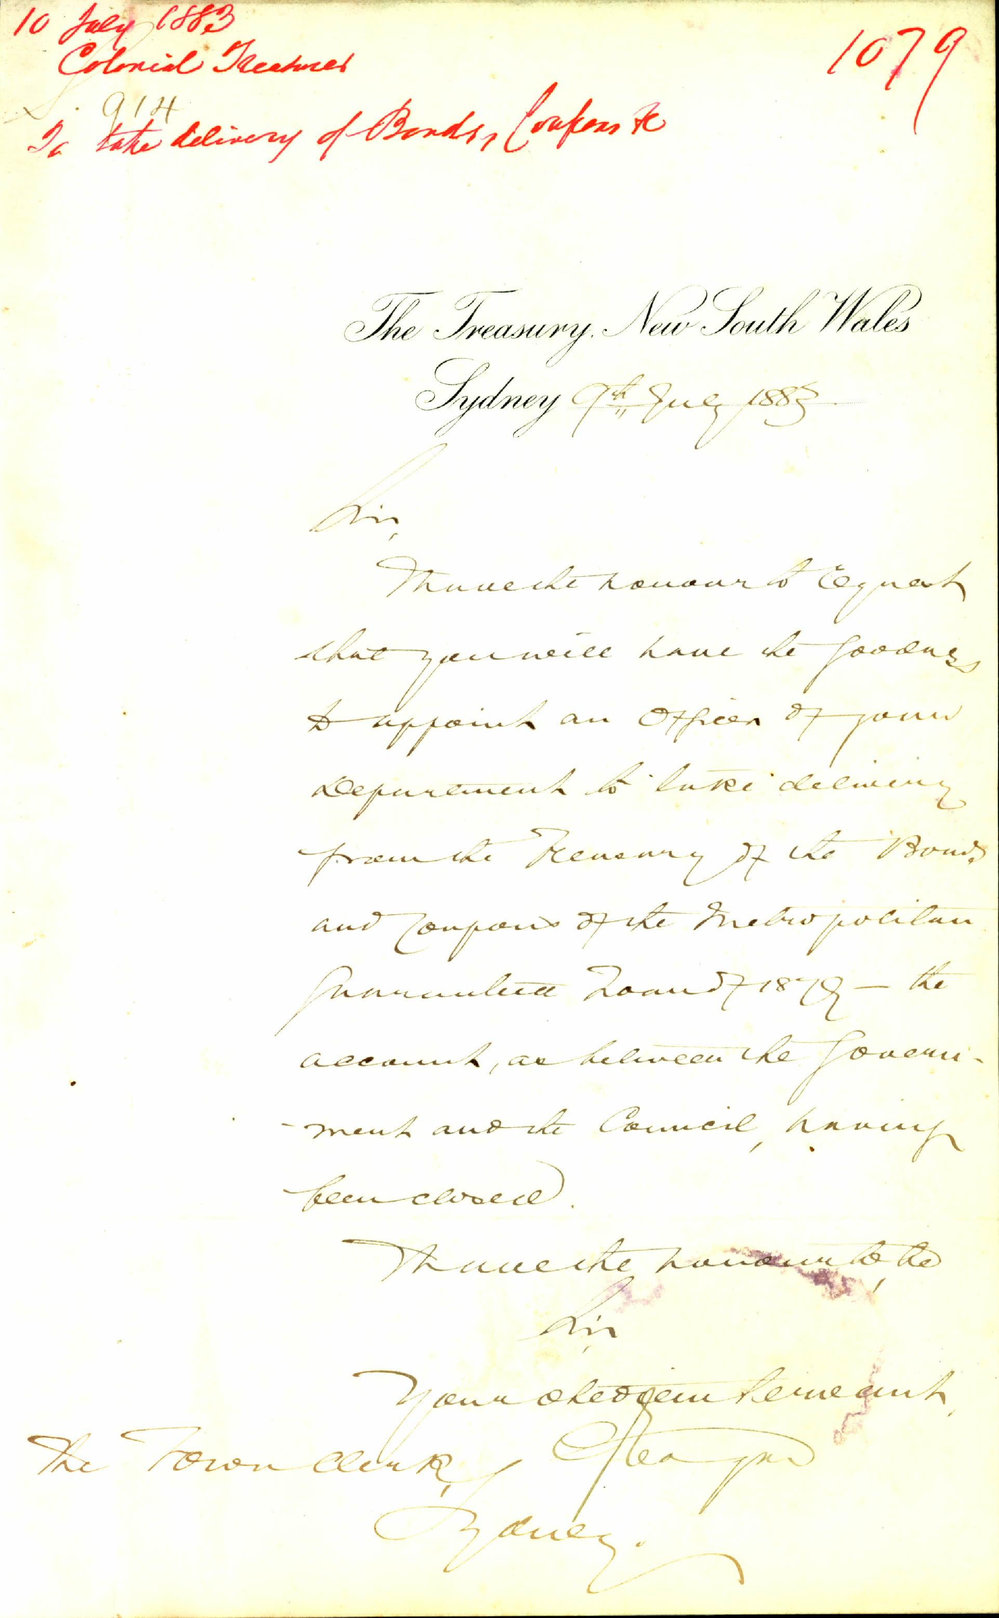 10 July 1883
Colonial Treasurer
1079
914
To take delivery of Bonds, Coupons &c
The Treasury, New South Wales
Sydney 9th July 1883
Sir,
I have the honour to request
that you will have the goodness
to appoint an Officer of your
Department to take delivery
from the Treasury of the Bonds
and Coupons of the Metropolitan
Guaranteed Loan of 1879 — the
account, as between the Govern-
-ment and the Council, having
been closed.
I have the honour to be,
Sir,
Your obedient Servant,
The Town Clerk,
Sydney.